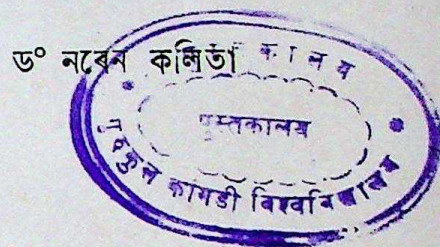 ড° নৰেন কলিতা
पुस्तकालय
गुरुकुल कांगडी विश्वविद्यालय